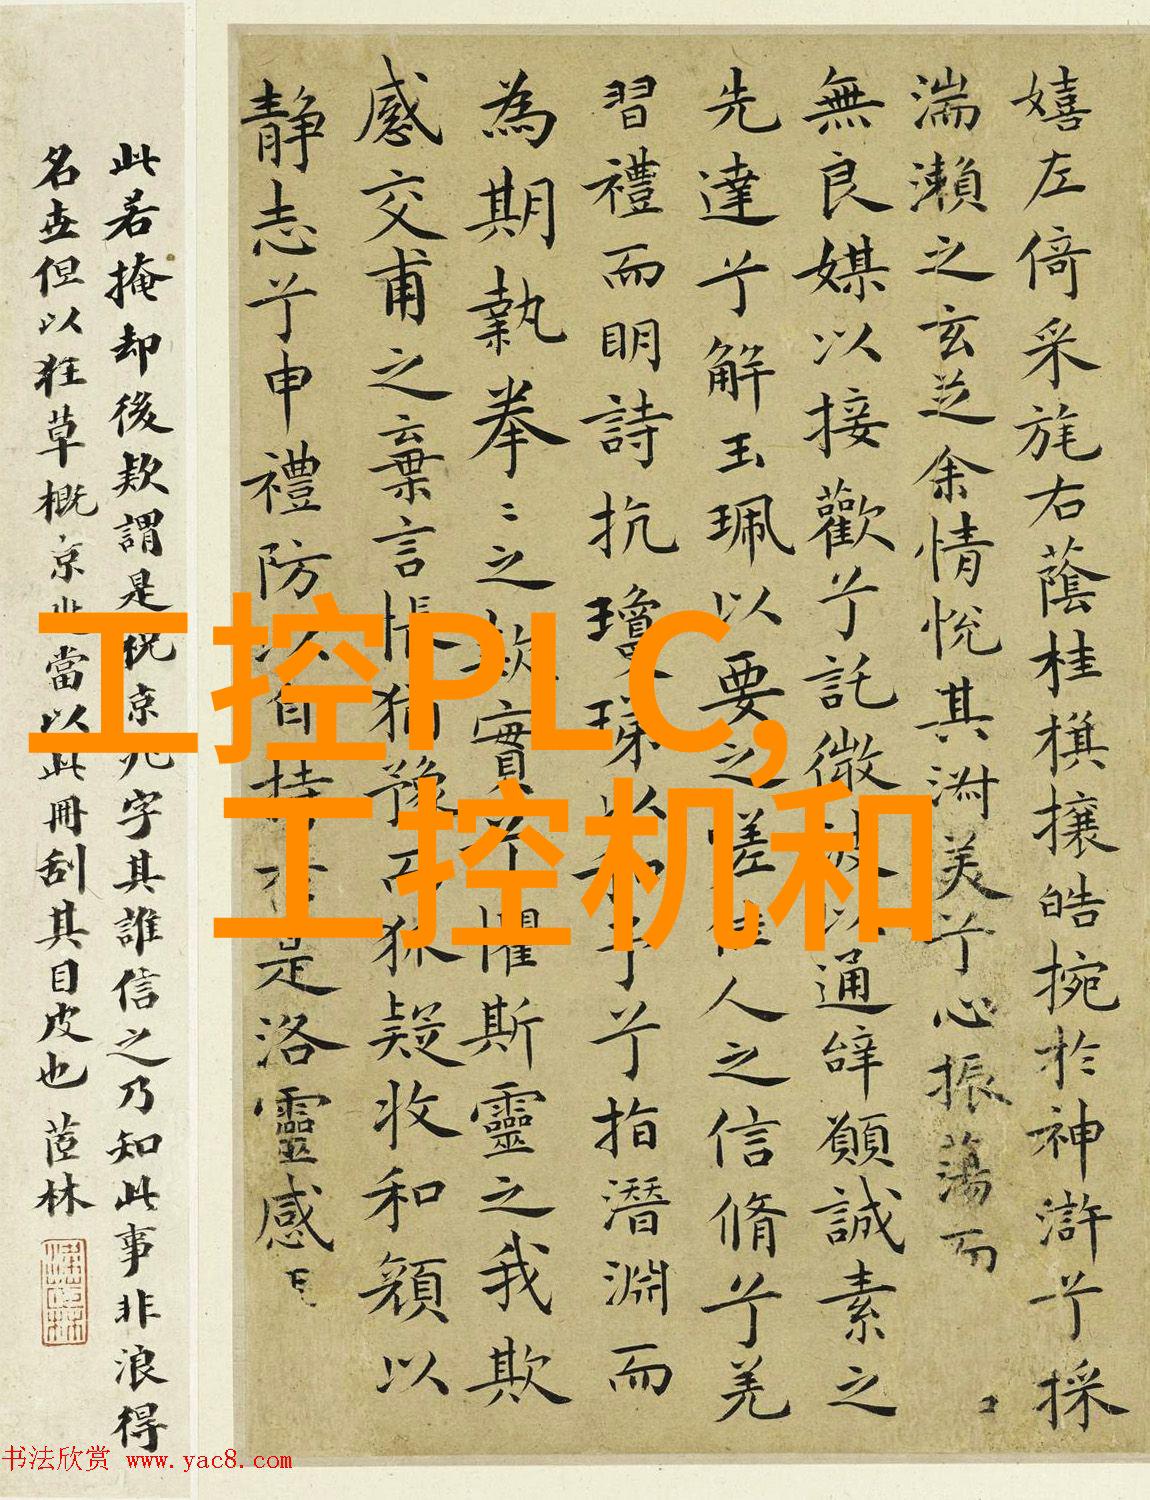 嬉左倚采旄右蔭桂旗攘皓捥於神滸兮採
湍瀨之玄芝余情悅其淑美兮心振蕩而
無良媒以接歡兮託微波以通辭願誠素之
先達兮解玉珮以要之嗟佳人之信脩兮羌
習禮而明詩抗瓊珶以和予兮指潛淵而
為期執拳〻之款實兮懼斯靈之我欺
感交甫之棄言悵猶豫而狐疑收和顏以
靜志兮申禮防以自持於是洛靈感
此若掩却後款謂是祝京兆字其誰信之乃知此事非浪得
名世但以狂草概京兆當以此冊刮其目皮也 茝林
工控PLC,
工控机和
书法欣赏 www.yac8.com